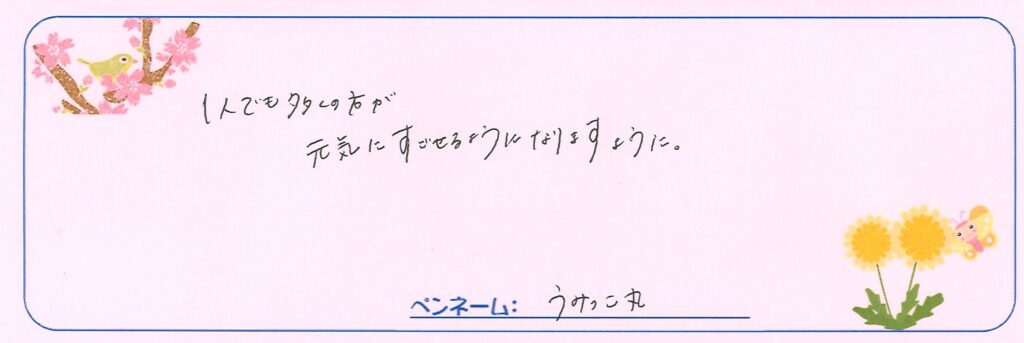 1人でも多くの方が
元気にすごせるようになりますように。
ペンネーム: うみっこ丸